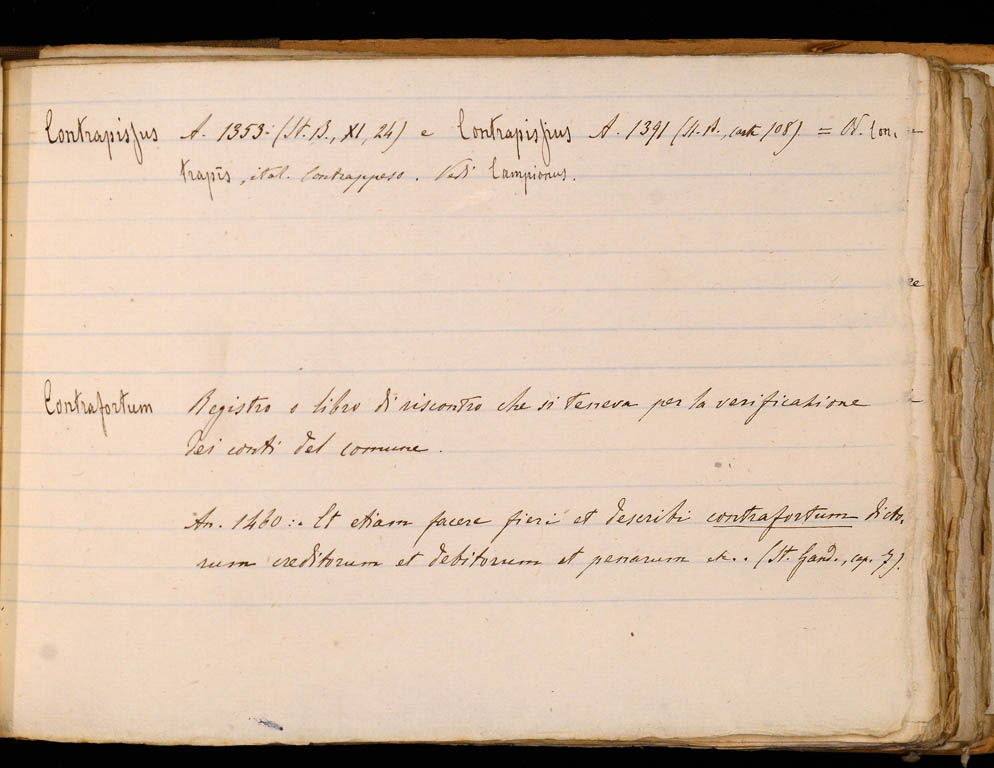 Contrapissus A. 1353: (St. B., XI, 24) e Contrapissius A. 1391 (St. B., cart. 108) = N. Con-
trapís, ital. Contrappeso. Vedi Campionus.
Contrafortum Registro o libro di riscontro che si teneva per la verificazione
dei conti del comune.
An. 1460:- Et etiam facere fieri et describi contrafortum dicto-
rum creditorum et debitorum et penarum etc.. (St. Gand., cap. 7).